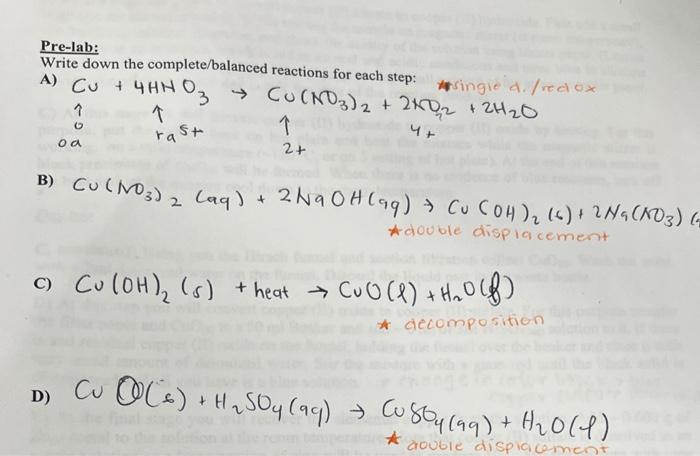 Pre-lab:
Write down the complete/balanced reactions for each step:
A) Cu + 4HNO3 → Cu(NO3)2 + 2NO2 + 2H2O
*single d./redox
↑ ↑ ↑ 4+
0 5+ 2+
B) Cu(NO3)2 (aq) + 2NaOH(aq) → Cu(OH)2 (s) + 2Na(NO3)
*double displacement
C) Cu(OH)2 (s) + heat → CuO(l) + H2O(l)
* decomposition
D) CuO(s) + H2SO4(aq) → CuSO4(aq) + H2O(l)
* double displacement